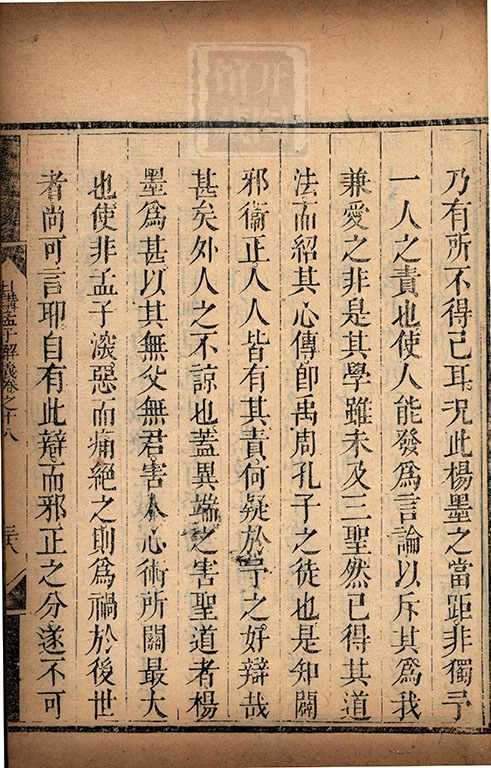 乃有所不得已耳况此楊墨之當距非獨予
一人之責也使人能發為言論以斥其為我
兼愛之非是其學雖未及三聖然已得其道
法而紹其心傳卽禹周孔子之徒也是知闢
邪衞正人人皆有其責何疑於予之好辯哉
甚矣外人之不諒也蓋異端之害聖道者楊
墨為甚以其無父無君害人心術所關最大
也使非孟子深惡而痛絕之則為禍於後世
者尚可言耶自有此辯而邪正之分遂不可
日講孟子解義卷之十八
三八